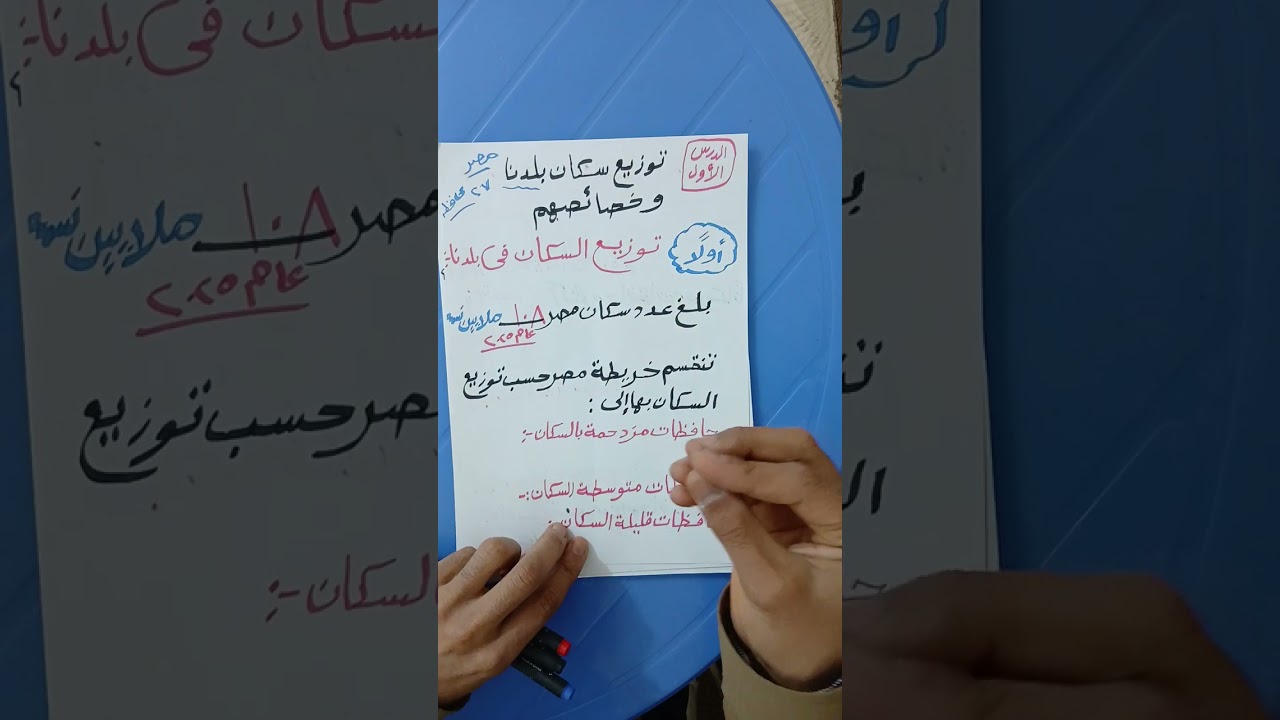 الدرس الأول
توزيع سكان بلدنا
مصر
٢٧ محافظة
وخصائصهم
أولًا
توزيع السكان فى بلدنا:-
بلغ عدد سكان مصر ١٠٨ ملايين نسمة
عام ٢٠٢٥
تنقسم خريطة مصر حسب توزيع
السكان بها إلى :
حافظات مزدحمة بالسكان:-
ات متوسطة السكان:-
افظات قليلة السكان: